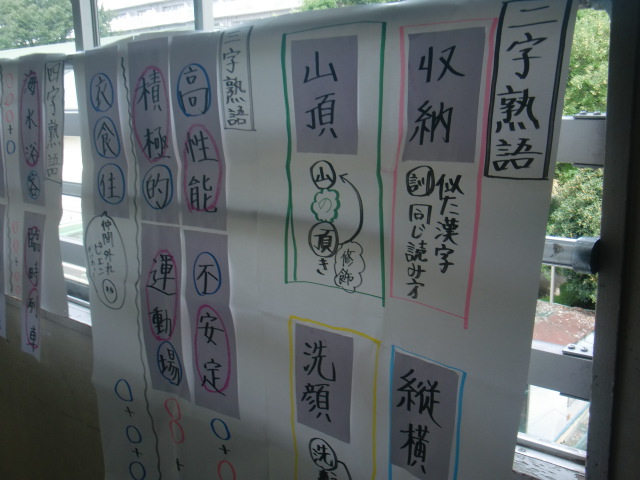 二字熟語
収納
似た漢字
訓同じ読み方
縦横
山頂
山の頂き
修飾
洗顔
洗
三字熟語
高性能
不安定
積極的
運動場
衣食住
仲間外れ
四字熟語
臨時列車
海水浴客